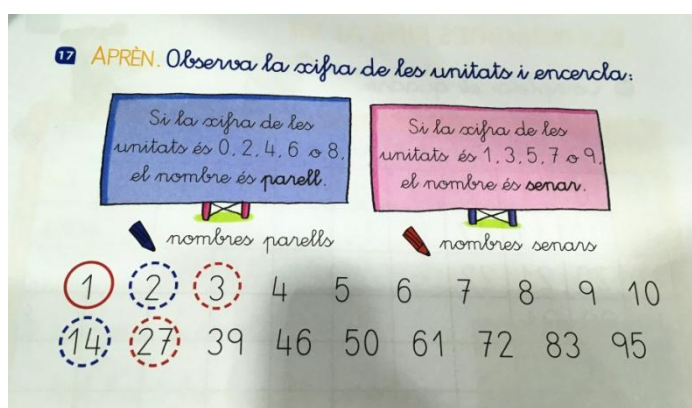 17 APRÈN. Observa la xifra de les unitats i encercla:
Si la xifra de les
unitats és 0, 2, 4, 6 o 8,
el nombre és parell.
Si la xifra de les
unitats és 1, 3, 5, 7 o 9,
el nombre és senar.
nombres parells
nombres senars
1 2 3 4 5 6 7 8 9 10
14 27 39 46 50 61 72 83 95